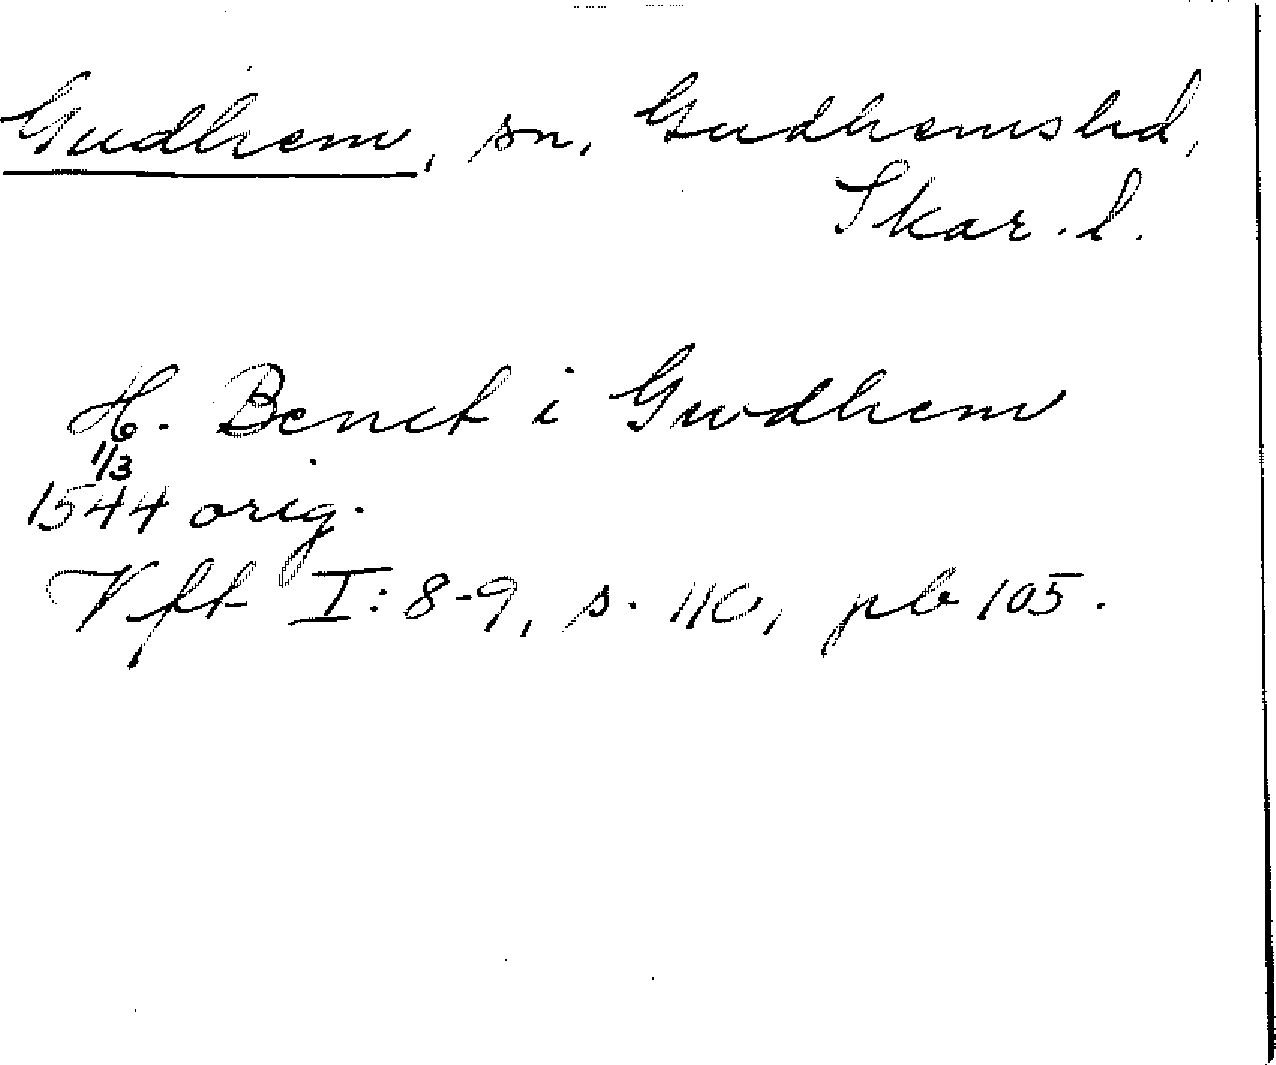 Gudhem, sn, Gudhems hd,
Skar. l.
H. Benct i Gwdhem
1/3
1544 orig.
Vft I: 8-9, s. 110, pb 105.